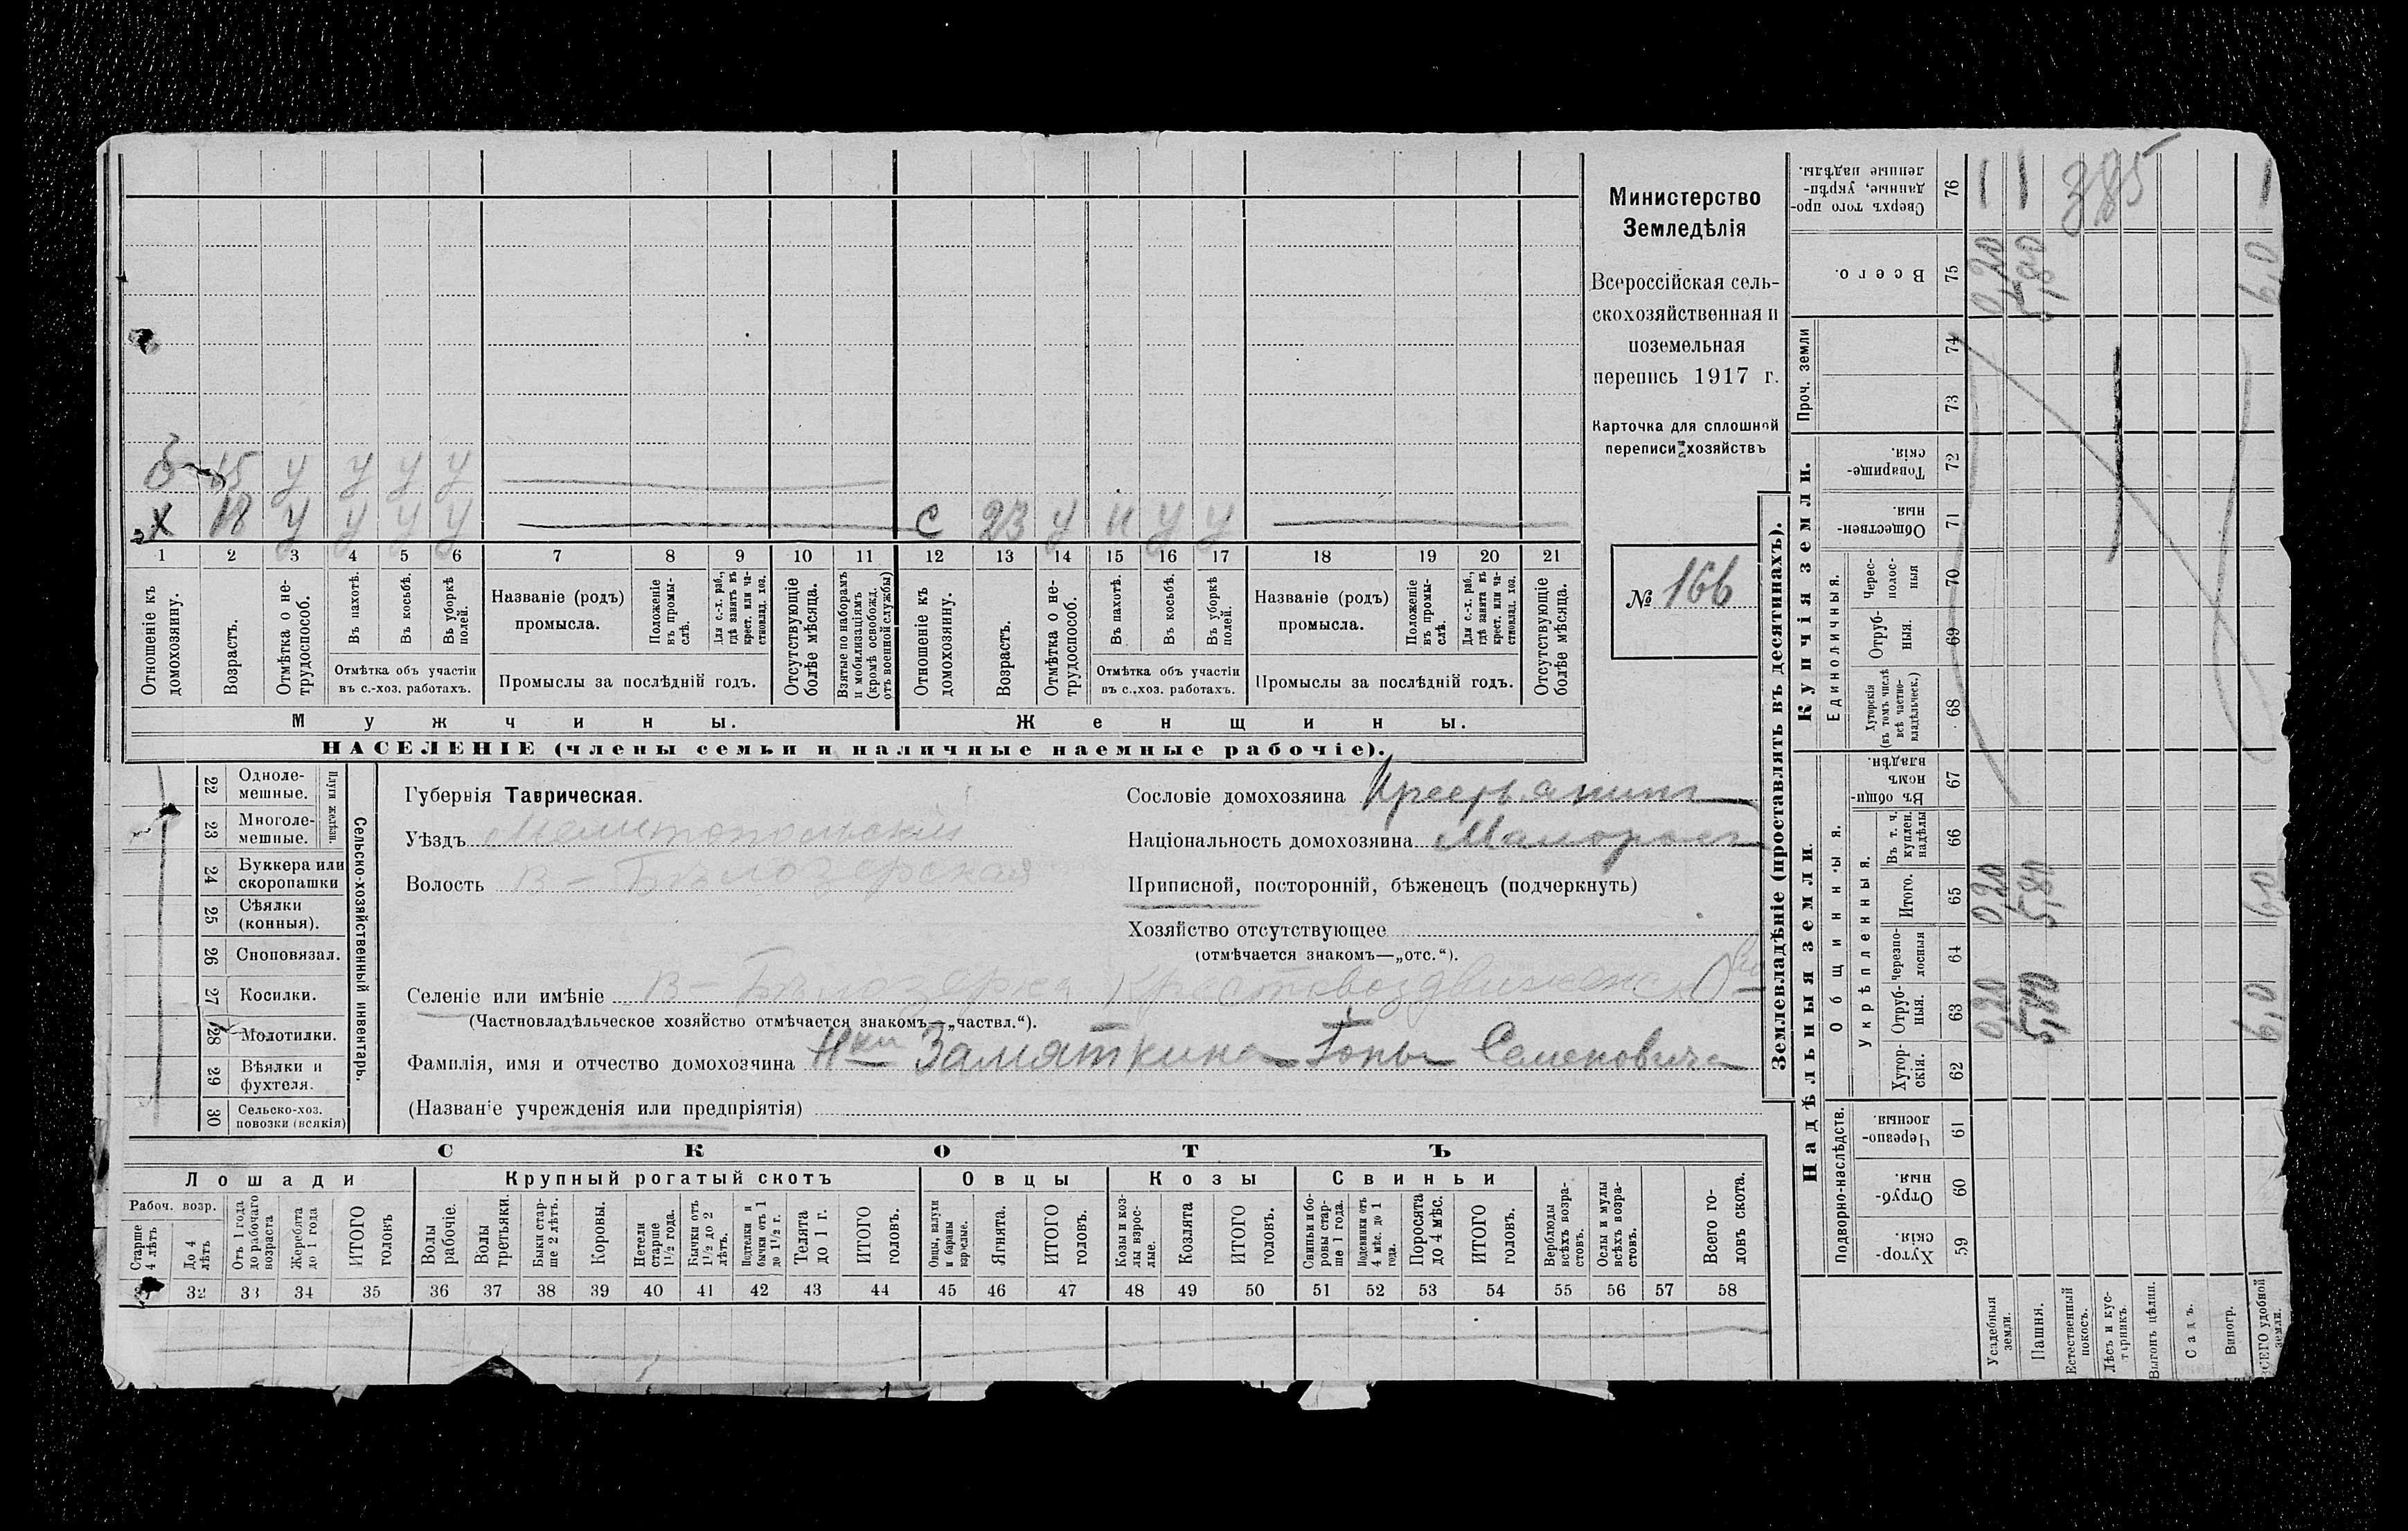 б 15 у у у у
х 18 у у у у с 23 у у у у
1 2 3 4 5 6 7 8 9 10 11 12 13 14 15 16 17 18 19 20 21
Отношеніе къ домохозяину.
Возрастъ.
Отмѣтка о не-трудоспособ.
Въ пахотѣ.
Въ косьбѣ.
Въ уборкѣ полей.
Отмѣтка объ участіи
въ с.-хоз. работахъ.
Названіе (родъ)
промысла.
Положеніе въ промы-слѣ.
Для с.-х. раб., гдѣ занятъ въ крест. или ча-стновлад. хоз.
Промыслы за послѣдній годъ.
Отсутствующіе болѣе мѣсяца.
Взятые по наборамъ и мобилизаціямъ (кромѣ освобожд. отъ военной службы)
Отношеніе къ домохозяину.
Возрастъ.
Отмѣтка о не-трудоспособ.
Въ пахотѣ.
Въ косьбѣ.
Въ уборкѣ полей.
Отмѣтка объ участіи
въ с.-хоз. работахъ.
Названіе (родъ)
промысла.
Положеніе въ промы-слѣ.
Для с.-х. раб., гдѣ занята въ крест. или ча-стновлад. хоз.
Промыслы за послѣдній годъ.
Отсутствующіе болѣе мѣсяца.
Мужчины. Женщины.
НАСЕЛЕНІЕ (члены семьи и наличные наемные рабочіе).
Министерство
Земледѣлія
Всероссійская сель-
скохозяйственная и
поземельная
перепись 1917 г.
Карточка для сплошной
переписи хозяйствъ
№ 166
Сельско-хозяйственный инвентарь.
Плуги желѣзн.
22 Одноле-мешные.
23 Многоле-мешные.
24 Буккера или скоропашки
25 Сѣялки (конныя).
26 Сноповязал.
27 Косилки.
28 Молотилки.
29 Вѣялки и фухтеля.
30 Сельско-хоз. повозки (всякія)
Губернія Таврическая.
Уѣздъ Мелитопольскій
Волость В-Бѣлозерская
Селеніе или имѣніе В-Бѣлозерка Крестовоздвиженск
(Частновладѣльческое хозяйство отмѣчается знакомъ—„частвл.“).
Фамилія, имя и отчество домохозяина Н-ки Замяткина Семеновича
(Названіе учрежденія или предпріятія)
Сословіе домохозяина Крестьянинъ
Національность домохозяина Малороссъ
Приписной, посторонній, бѣженецъ (подчеркнуть)
Хозяйство отсутствующее
(отмѣчается знакомъ—„отс.“).
СКОТЪ
Лошади Крупный рогатый скотъ Овцы Козы Свиньи
Рабоч. возр.
Старше 4 лѣтъ
До 4 лѣтъ
Отъ 1 года до рабочаго возраста
Жеребята до 1 года
ИТОГО головъ
Волы рабочіе.
Волы третьяки.
Быки стар-ше 2 лѣтъ.
Коровы.
Нетели старше 1½ года.
Бычки отъ 1½ до 2 лѣтъ.
Подтелки и бычки отъ 1 до 1½ г.
Телята до 1 г.
ИТОГО головъ.
Овцы, валухи и бараны взрслые.
Ягнята.
ИТОГО головъ.
Козы и коз-лы взрос-лые.
Козлята
ИТОГО головъ.
Свиньи и бо-ровы стар-ше 1 года.
Подсвинки отъ 4 мѣс. до 1 года.
Поросята до 4 мѣс.
ИТОГО головъ.
Верблюды всѣхъ возра-стовъ.
Ослы и мулы всѣхъ возра-стовъ.
Всего го-ловъ скота.
32 33 34 35 36 37 38 39 40 41 42 43 44 45 46 47 48 49 50 51 52 53 54 55 56 57 58
Землевладѣніе (проставлять въ десятинахъ).
Надѣльныя земли. Купчія земли. Проч. земли
Подворно-наслѣдств.
Общинныя.
Укрѣпленныя.
Единоличныя.
Хутор-скія. 59
Отруб-ныя. 60
Черезпо-лосныя 61
Хутор-скія. 62
Отруб-ныя. 63
Черезпо-лосныя 64
Итого. 65
Въ т. ч. куплен. надѣлы 66
Въ общи-номъ владѣн. 67
Хуторскія (въ томъ числѣ всѣ частно-владѣльческ.) 68
Отруб-ныя. 69
Черес-полос-ныя 70
Обществен-ныя. 71
Товарище-скія. 72
73
74
Всего. 75
Сверхъ того про-данные, укрѣп-ленные надѣлы. 76
Усадебныя земли. 0,20 0,20 0,20
Пашня. 5,80 5,80 5,80
Естественный покосъ. 385
Лѣсъ и кус-тарникъ.
Выгонъ цѣлин.
Садъ.
Виногр.
ВСЕГО удобной земли. 6,0 6,0 6,0